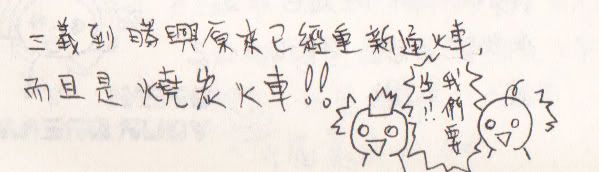 三義到勝興原來已經重新通火車，
而且是燒炭火車!!
我們要
坐!!